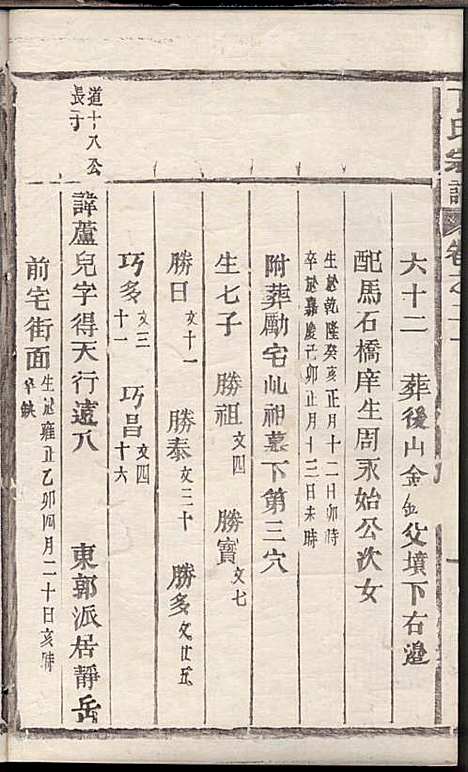 丁氏宗譜 卷之十一
六十二 葬後山金魚父墳下右邉
配馬石橋庠生周永始公次女
生於乾隆癸亥正月十二日卯時
卒於嘉慶己卯正月十三日未時
附葬勵宅山祖墓下第三穴
生七子 勝祖文四 勝寳文七
勝日文十一 勝泰文三十 勝多文廿五
巧多文三十一 巧昌文四十六
道十八公長子
諱蘆兒字得天行遠八 東郭派居靜岳
前宅街面生於雍正乙卯四月二十日亥時卒缺